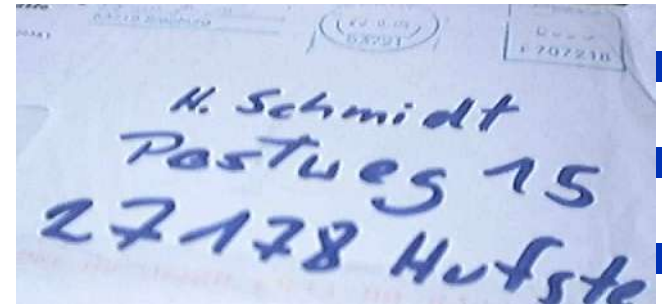 53721
F707218
H. Schmidt
Postweg 15
27178 Hufste